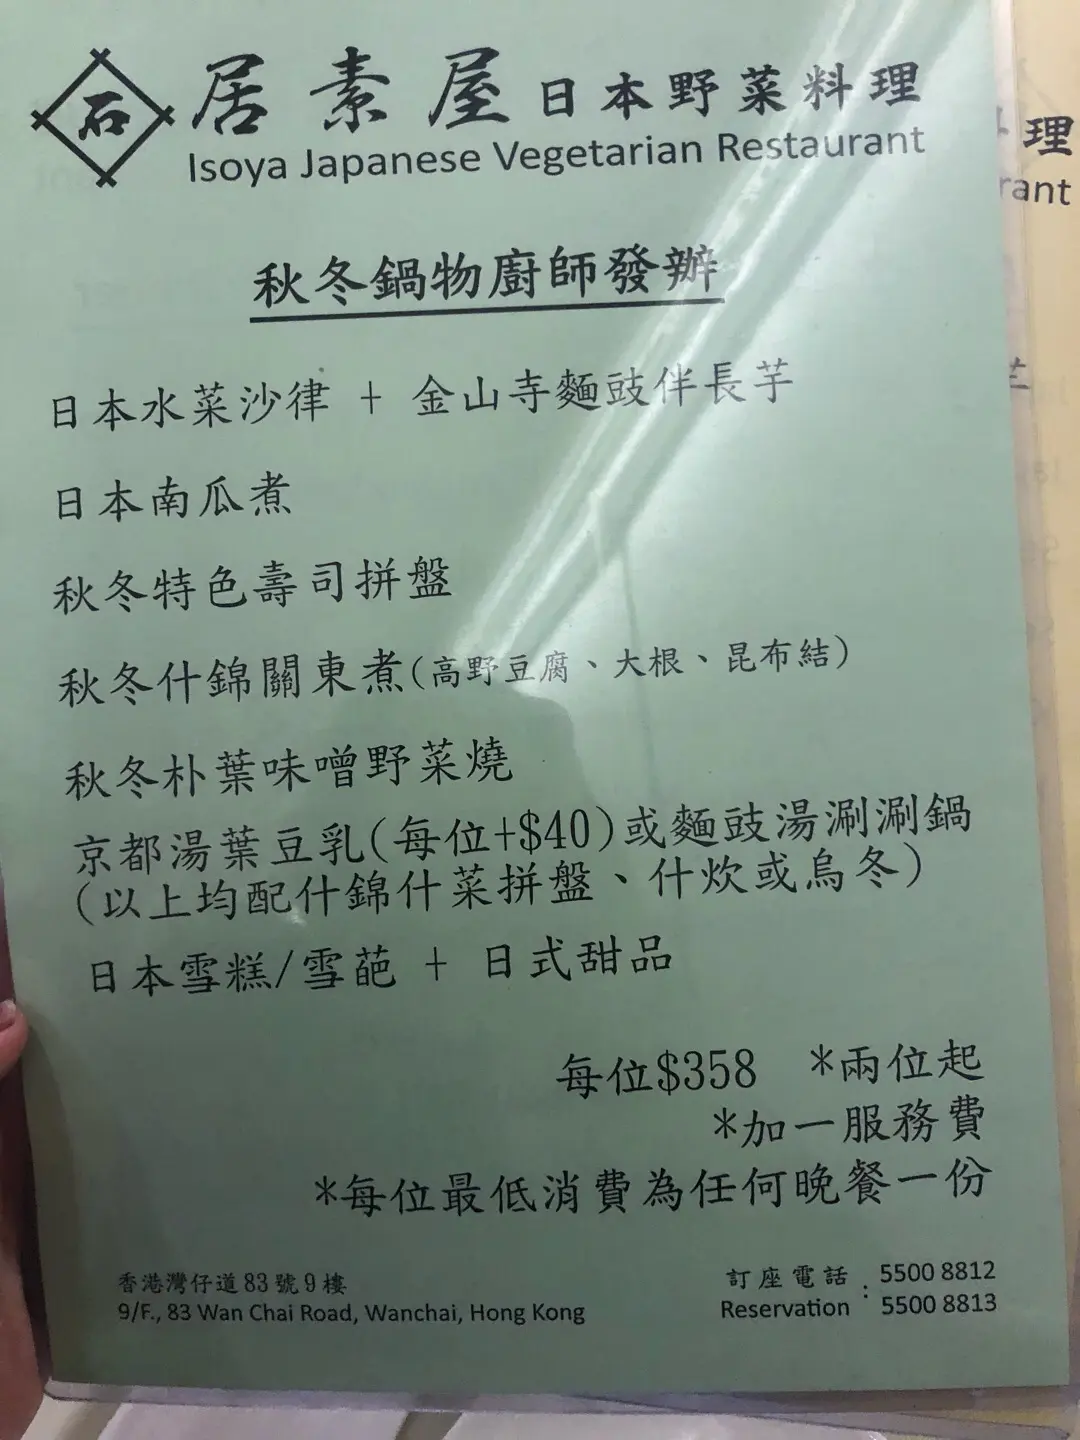 石 居素屋 日本野菜料理
Isoya Japanese Vegetarian Restaurant
秋冬鍋物廚師發辦
日本水菜沙律 + 金山寺麵豉伴長芋
日本南瓜煮
秋冬特色壽司拼盤
秋冬什錦關東煮(高野豆腐、大根、昆布結)
秋冬朴葉味噌野菜燒
京都湯葉豆乳(每位+$40)或麵豉湯涮涮鍋
(以上均配什錦什菜拼盤、什炊或烏冬)
日本雪糕/雪葩 + 日式甜品
每位$358 *兩位起
*加一服務費
*每位最低消費為任何晚餐一份
香港灣仔道83號9樓
9/F., 83 Wan Chai Road, Wanchai, Hong Kong
訂座電話 : 5500 8812
Reservation 5500 8813
理
rant